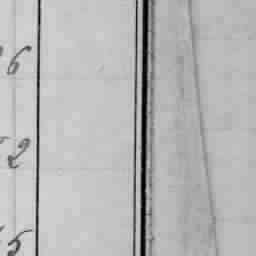 6
2
5